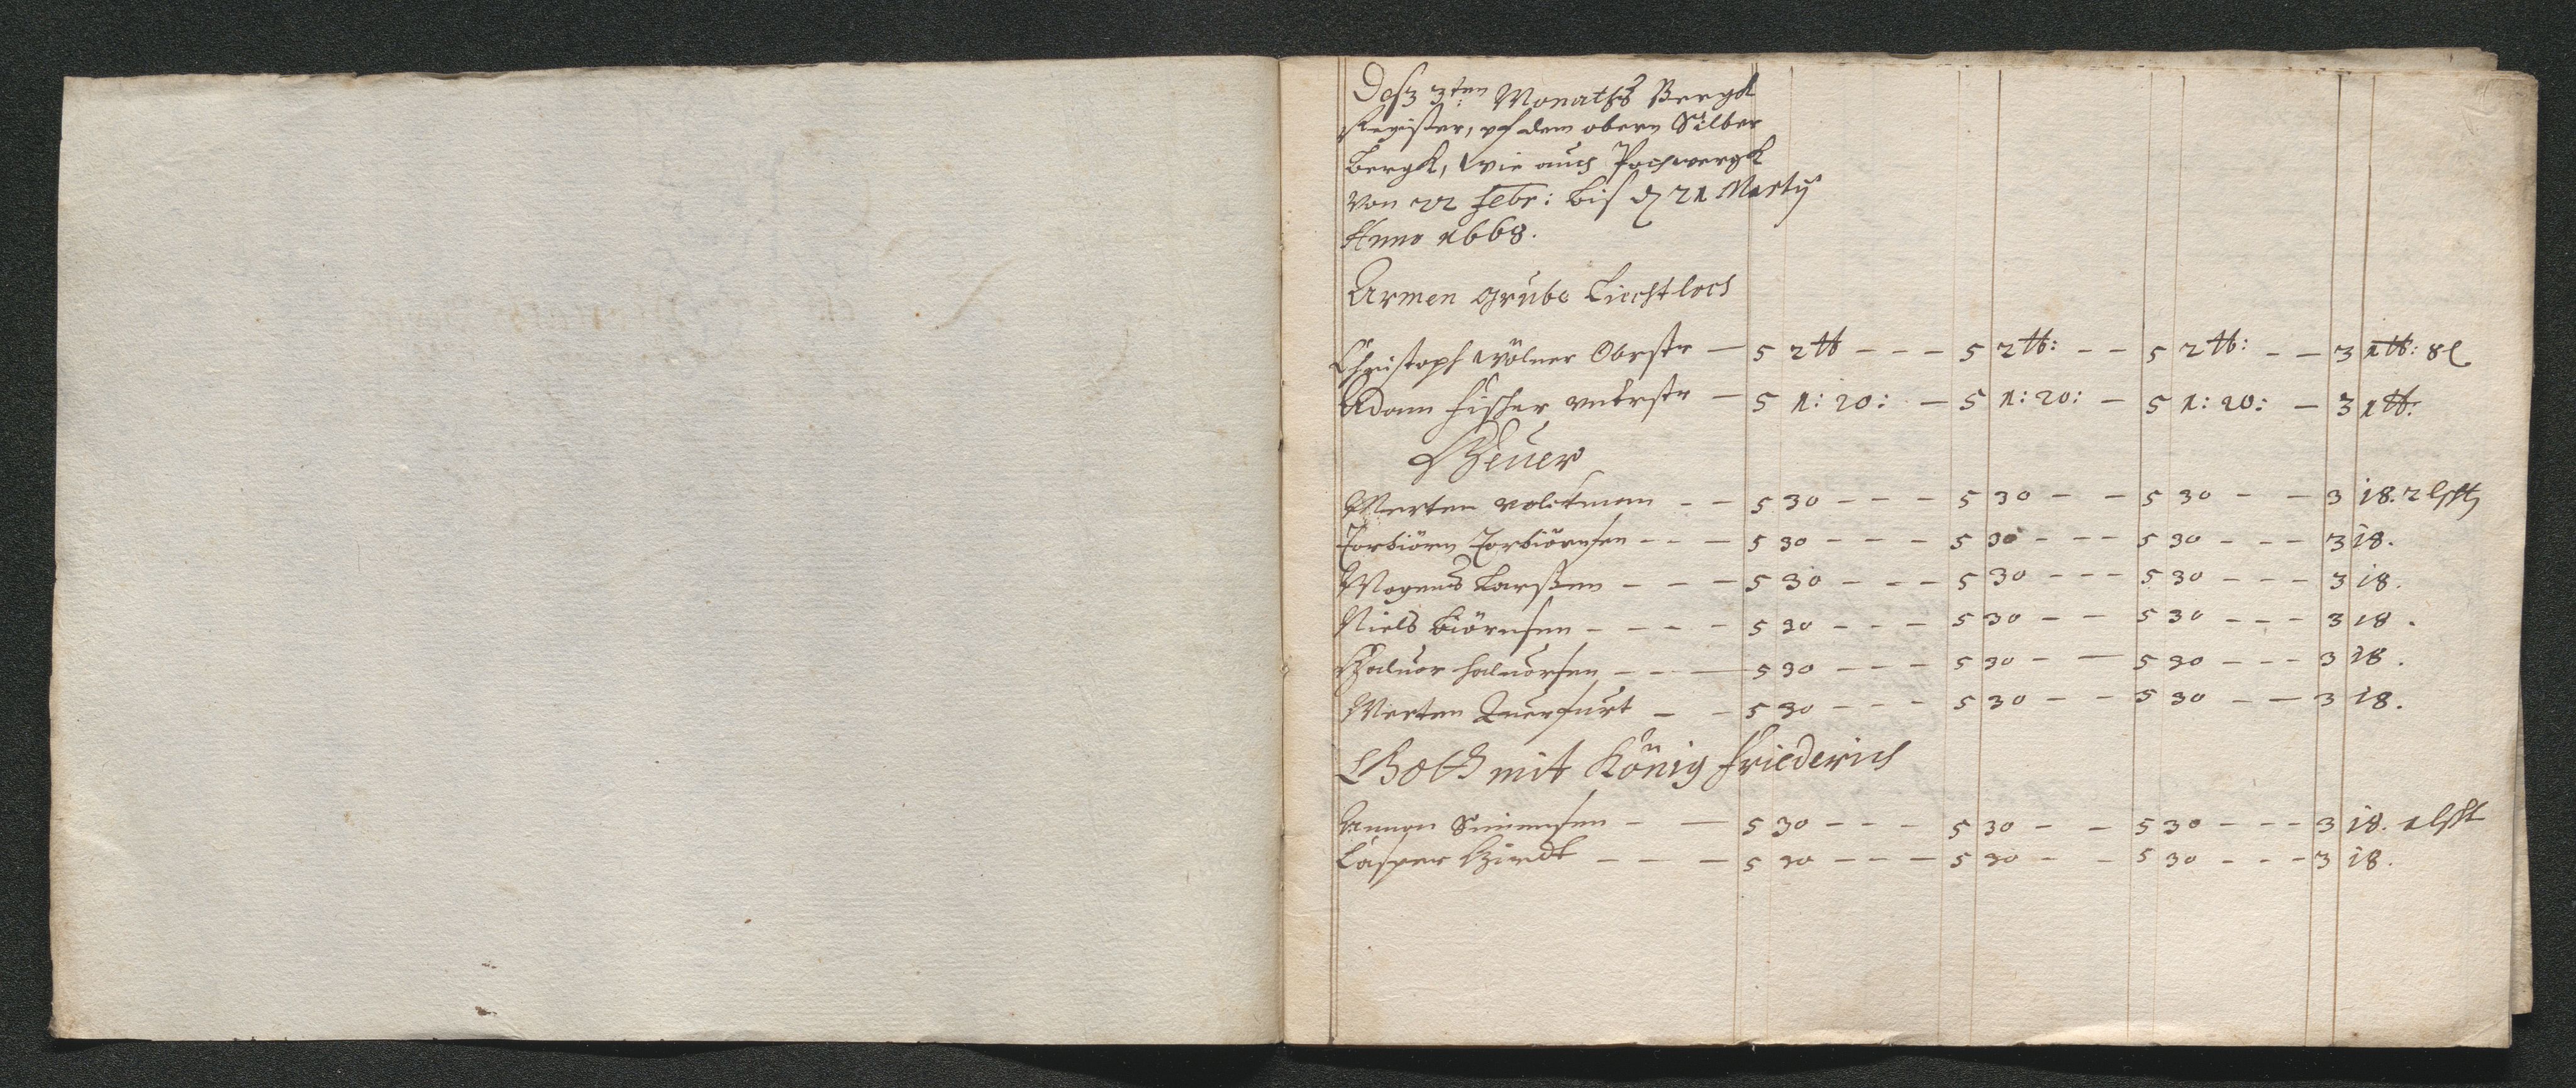 Deß 3ten Monathß Bergk
Register, vf dem obern Silber
Bergk, Wie auch Pochwergk
Von 22 Febr: biß d 21 Marty
Anno 1668.
Armen Grube Liechtloch
Christoph Wölner Obrstr — 5 2 tt — — — 5 2 tt: — — 5 2 tt: — — 3 1 tt: 8 l
Adam Fischer vntrstr — 5 1: 20: — 5 1: 20: — 5 1: 20: — 3 1 tt:
Heuer
Merten Volckman — — 5 30 — — — 5 30 — — 5 30 — — 3 18. 2
Torbiörn Torbiörnsen — — — 5 30 — — — 5 30 — — — 5 30 — — — 3 18.
Mogens Larßen — — — 5 30 — — — 5 30 — — — 5 30 — — — 3 18.
Niels Biörnsen — — — — 5 30 — — — 5 30 — — 5 30 — — — 3 18.
Haluor Haluorsen — — — 5 30 — — — 5 30 — — 5 30 — — — 3 18.
Merten Querfurt — — 5 30 — — — 5 30 — — 5 30 — — 3 18.
Gott mit König Friederich
Amun Simensen — — 5 30 — — — 5 30 — — 5 30 — — — 3 18. 1
Casper Hirdt — — — 5 30 — — — 5 30 — — 5 30 — — — 3 18.